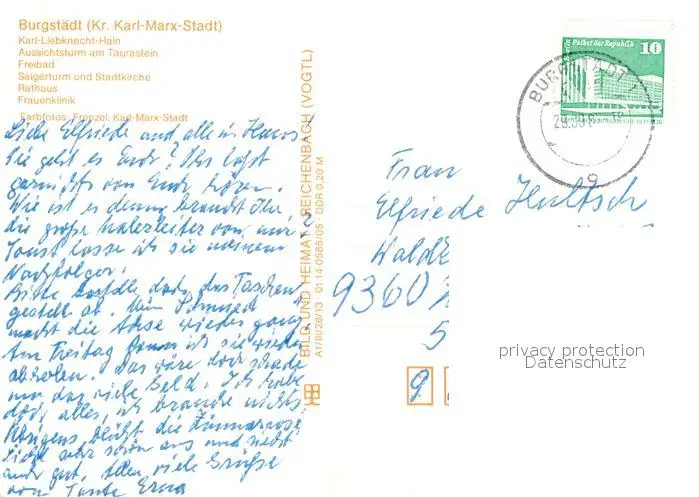 Burgstädt (Kr. Karl-Marx-Stadt)
Karl-Liebknecht-Hain
Aussichtsturm am Taurastein
Freibad
Saigerturm und Stadtkirche
Rathaus
Frauenklinik
Farbfotos: Frenzel, Karl-Marx-Stadt
Liebe Elfriede und alle im Hause
Wie geht es Euch? Ihr laßt
garnichts von Euch hören.
Wie ist es denn, braucht Ihr
die große Malerleiter von mir,
sonst lasse ich sie meinem
Nachfolger.
Bitte bestelle doch das Taschen
gestell ab. Mein
macht die Achse wieder ganz
Am Freitag kann ich sie wieder
abholen. Das wäre doch schade
um das viele Geld. Ich habe
doch alles, ich brauche nichts.
Übrigens, blüht die
sehr schön aus und riecht
auch gut. Allen viele Grüße
von Tante Erna
BILD UND HEIMAT REICHENBACH (VOGTL)
A1/III/26/13 01 14 0565/05 DDR 0,20 M
Palast der Republik
10
BURGSTÄDT 1
Frau
Elfriede Hultsch
9360
5
9
privacy protection
Datenschutz